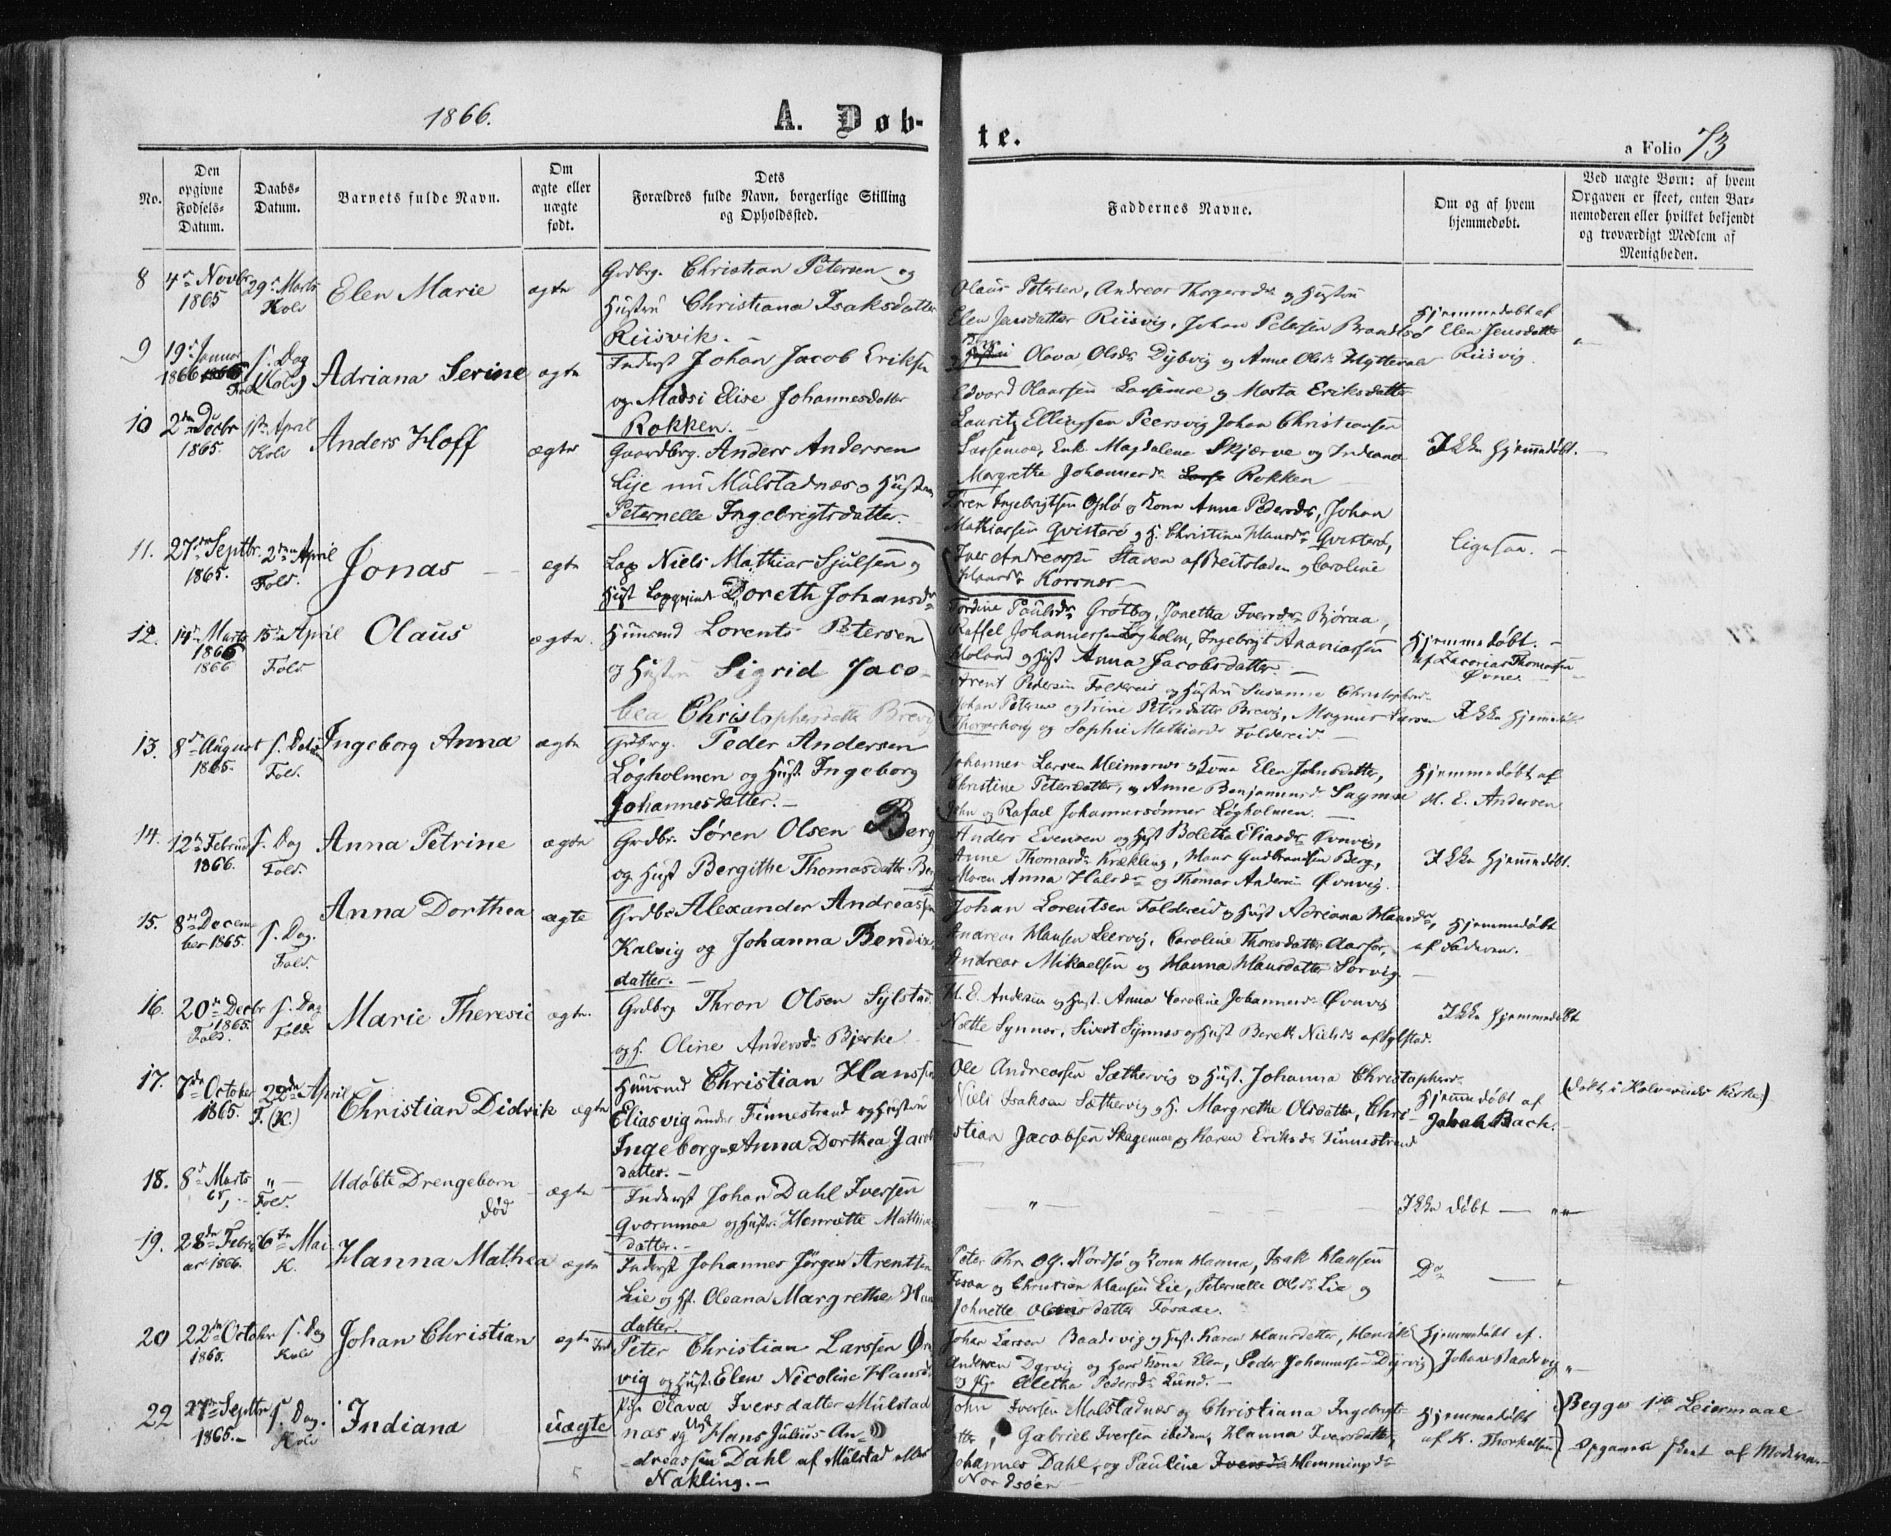 1866.
A. Døb-
te.
a Folio 73
No.
Den opgivne Fødsels-Datum.
Daabs-Datum.
Barnets fulde Navn.
Om ægte eller uægte født.
Dets Forældres fulde Navn, borgerlige Stilling og Opholdssted.
Faddernes Navne.
Om og af hvem hjemmedøbt.
Ved uægte Børn: af hvem Opgaven er skeet, enten Barnemoderen eller hvilket bekjendt og troværdigt Medlem af Menigheden.
8 4de Novbr 1865 29de Marts Kolv Elen Marie ægte
Grdbrg. Christian Petersen og
Hustru Christiana Isaksdatter
Riisvik.
Olaus Petersen, Andreas Thorgersds og Hustru
Elen Jensdatter Riisvig, Johan Petersen Brandtsø
Olava Olsdr Dybvig og Anne Olsdr
Hjemmedøbt af
Elen Jensdatter
Riisvig
9 19de Januar 1866 s. Dag (Kolv) Adriana Serine ægte
Inderst Johan Jacob Eriksen
og Madsi Elise Johannesdatter
Rokken.
Edvard Olaussen og Marta Eriksdatter
Lauritz Ellingsen Peersvig Johan Christiansen
Enk. Magdalena Skjærve og Indiana
Margrethe Johannesdr Rokken
Ikke hjemmedøbt.
10 2den Decbr 1865. 1ste April Kolv Anders Hoff ægte
Gaardbrg. Anders Andersen
Lije nu Mulstadnæs og Hustru
Peternelle Ingebrigtsdatter.
Ingebrigtsen Opslø og Kona Anna Pedersdr, Johan
Mathiassen Qvisterø og H. Christina Hansdr Qvisterø,
Iver Andreassen Staven af Beitstaden og Caroline
Hansdr Korsnes
Ligesaa.
11. 27de Septbr. 1865. 2den April Fold. Jonas ægte
Lap Niels Mathias Sjulsen og
Hust Lapqvinde Doreth Johansdr
Tordine Paulsdr Grøtbog, Jonetha Iversdr Bjøraa,
Raffel Johannessen Løgholm, Ingebrigt Ananiassen
Moland og Hust Anna Jacobsdatter
Hjemmedøbt.
af Zacarias Thomassen
Øvnes
12. 14de Marts 1866 15de April Fold. Olaus ægte.
Huusmd Lorents Petersen
og Hustru Sigrid Jaco-
bea Christophersdatter Brevig
Arent Pedersen Foldereid og Hustru Susanna Christophersdr
Johan Petersen og Trine Petersdatter Brevig, Magnus Larsen
og Sophie Mathiasdr Foldereid.
Ikke hjemmedøbt
13. 8de August 1865. s. Dato Fold. Ingeborg Anna ægte
Grdbrg. Peder Andersen
Løgholmen og Hust. Ingeborg
Johannesdatter.
Johannes Larsen og Kona Elen Johnsdatter,
Christine Petersdatter, og Anne Benjaminsdr
John og Rafael Johannessønner Løgholmen.
Hjemmedøbt af
M. E. Andersen
14. 12te Februar 1866. s. Dag Fold. Anna Petrine ægte
Grdbr. Søren Olsen Berg
og Hust Bergithe Thomasdatter Berg
Anders Evensen og Hust Boletha Eliasdr Øvnvig,
Anne Thomasdr Krækling, Hans Gudbrandsen Berg,
Maren Anna Halsdr og Thomas Andersen Øvnvig.
Ikke hjemmedøbt.
15. 8de December 1865. s. Dag. Fold. Anna Dorthea ægte
Grdbr. Alexander Andreassen
Kalvig og Johanna Bendix-
datter.
Johan Lorentsen Foldereid og Hust Adriana Hansdr,
Andreas Hansen Leervig, Caroline Thoresdatter Aarfor,
Andreas Mikaelsen og Hanna Hansdatter Sørvig
Hjemmedøbt
af Faderen.
16. 20de Decbr 1865. Fold. s. Dag Fold. Marie Theresie ægte.
Grdbrg Thron Olsen Sylstad
og H. Oline Andersdr Bjerke
M. E. Andersen og Hust. Anna Caroline Johannesdr Øvnvig
Nætte Synnes, Sivert Synnes og Hust Berett Nielsdr af Sylstad.
Ikke hjemmedøbt
17. 7de October 1865. 22de April F. (K.) Christian Didrik ægte
Huusmd Christian Hanssen
Eliasvig under Finnestrand og Hustru
Ingeborg Anna Dorthea Jacobs
datter.
Ole Andreassen Sæthervig og Hust. Johanna Christophersdr
Niels Isaksen Sæthervig og H. Margrethe Olsdatter, Chri-
stian Jacobsen Skagemo og Karen Eriksdr Finnestrand
Hjemmedøbt af
Jakob Bach.
(døbt i Kolvereids Kirke)
18. 8de Marts 65 Fold. Udøbte Drengebarn død ægte
Inderst Johan Dahl Iversen
Qvernmoe og Hustr. Henriette Mathias
datter.
Ikke døbt
19. 28de Februar 1866. 6te Mai K. Hanna Mathea ægte
Inderst Johannes Jørgen Arentsen
Lie og H. Oleana Margrethe Hans
datter.
Peter Chr. Og. Nordsø og Kona Hanna, Isak Hansen
Foraa og Christian Hansen Lie, Peternelle Olsdr Lie og
Johnette Olausdatter Foraae.
Do
20 22de Octobr 1865. s. Dag Kolv Johan Christian ægte
Ind. Peter Christian Larssen Øren
vig og Hust. Elen Nicoline Hansdr
Johan Larsen Baadsvig og Hust. Karen Hansdatter, Henrik
Andersen Dyrvig og hans Kona Elen, Peder Johannessen Dyrvig
og Pige Aletha Pedersdr Lund.
Hjemmedøbt af.
Johan Baadsvig
22 27de Septbr 1865. s. Dag. Kolv Indiana uægte
Pige Olava Iversdatter Mulstad
næs og Ungk Hans Julius An-
dreassen Dahl af Mulstad eller
Nakling.
John Iversen Malstadnæs og Christiana Ingebrigts-
datter, Gabriel Iversen ibidem, Hanna Iversdatter,
Johannes Dahl, og Pauline Iversdr Hemmingsdr
Nordsøen
Hjemmedøbt
af K. Thorkelsen
Begges 1ste Leiermaal
Opgaven skeet af Moderen